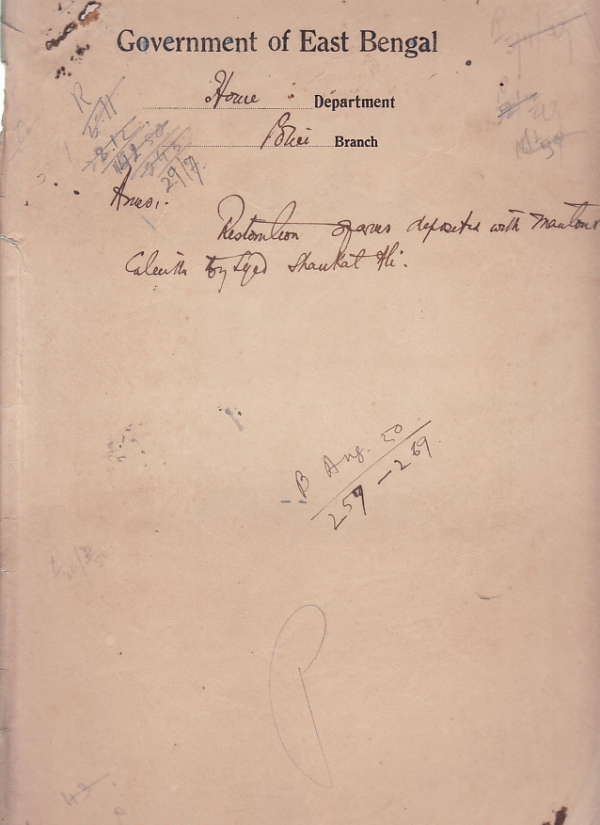 Government of East Bengal
Home Department
Police Branch
R
29/7
Arms.
Restoration of arms deposited with Mantons
Calcutta by Syed Shaukat Ali.
B Aug. 50
259 – 269